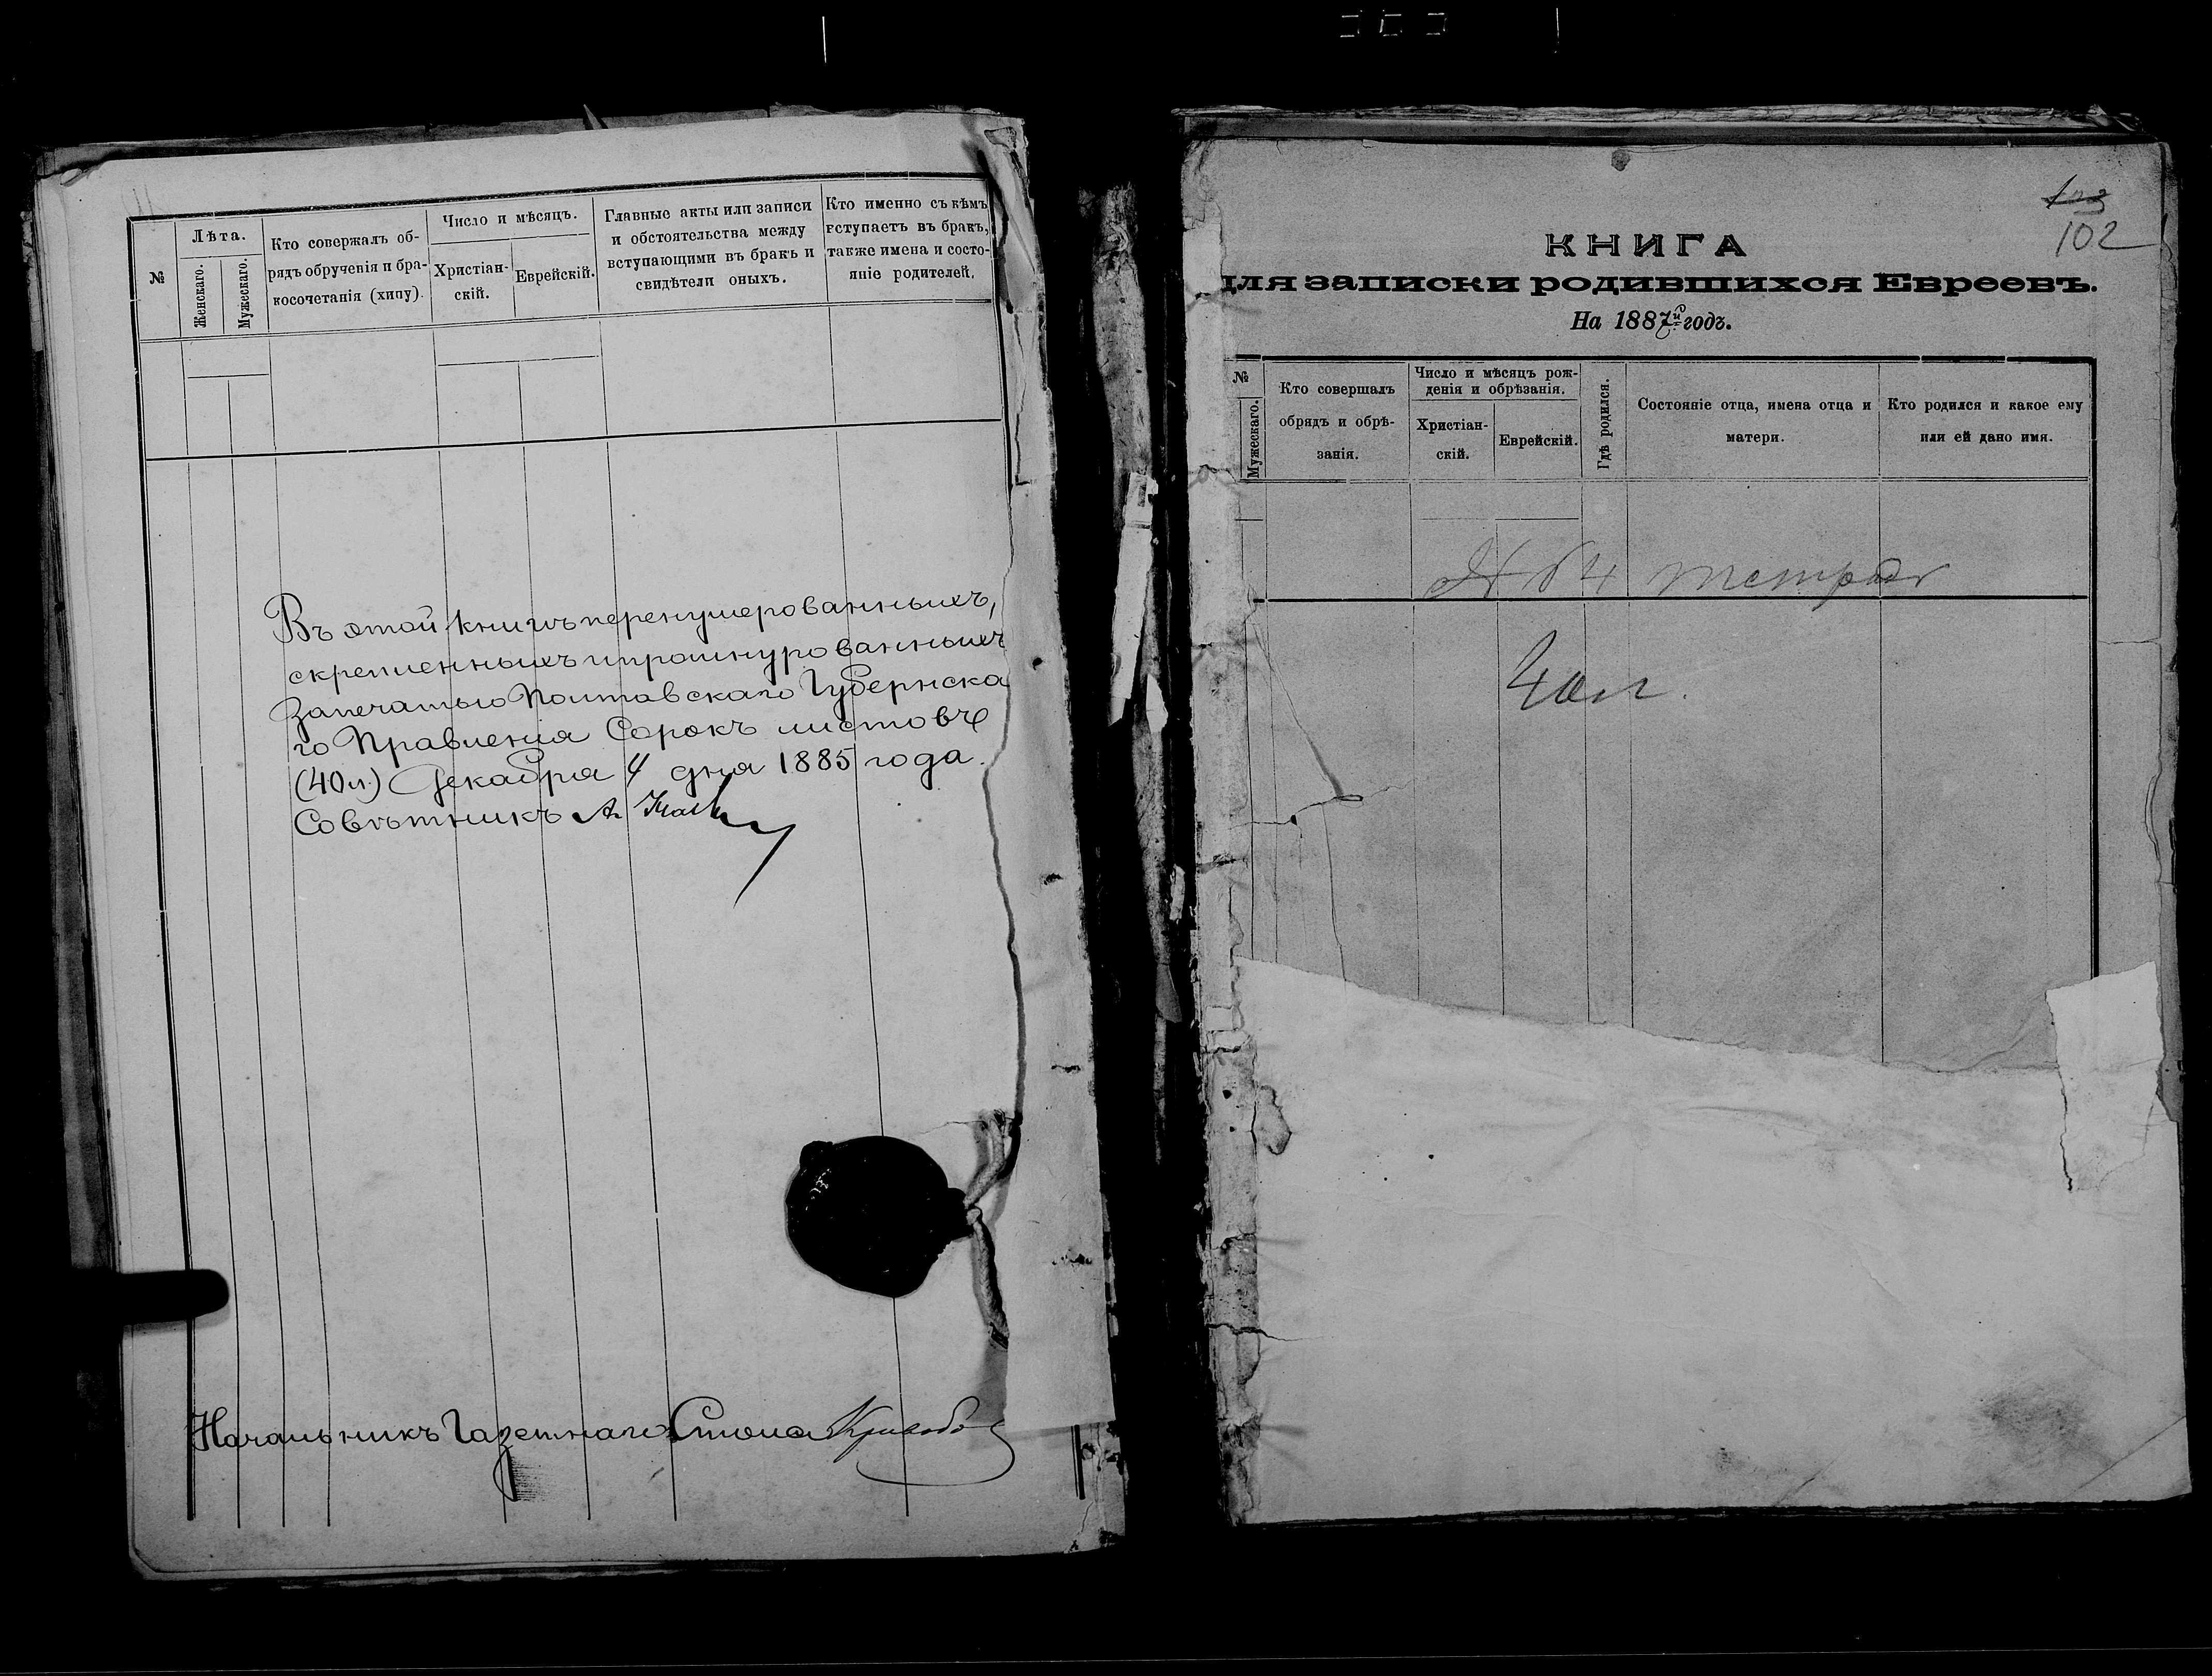 №
Лѣта.
Женскаго.
Мужескаго.
Кто совержалъ об-
рядъ обрученія и бра-
косочетанія (хипу).
Число и мѣсяцъ.
Христіан-
скій.
Еврейскій.
Главные акты или записи
и обстоятельства между
вступающими въ бракъ и
свидѣтели оныхъ.
Кто именно съ кѣмъ
вступаетъ въ бракъ,
также имена и состо-
яніе родителей.
Въ этой книгѣ перенумерованныхъ,
скрепленныхъ и прошнурованныхъ
за печатью Полтавскаго Губернска
го Правленія Сорокъ листовъ
(40 л.) Декабря 4 дня 1885 года.
Совѣтникъ А.
Начальникъ Газетнаго Стола
102
КНИГА
для записки родившихся Евреевъ.
На 1887й годъ.
№
Мужескаго.
Кто совершалъ
обрядъ и обрѣ-
занія.
Число и мѣсяцъ рож-
денія и обрѣзанія.
Христіан-
скій.
Еврейскій.
Гдѣ родился.
Состояніе отца, имена отца и
матери.
Кто родился и какое ему
или ей дано имя.
тетрадь
40 л.